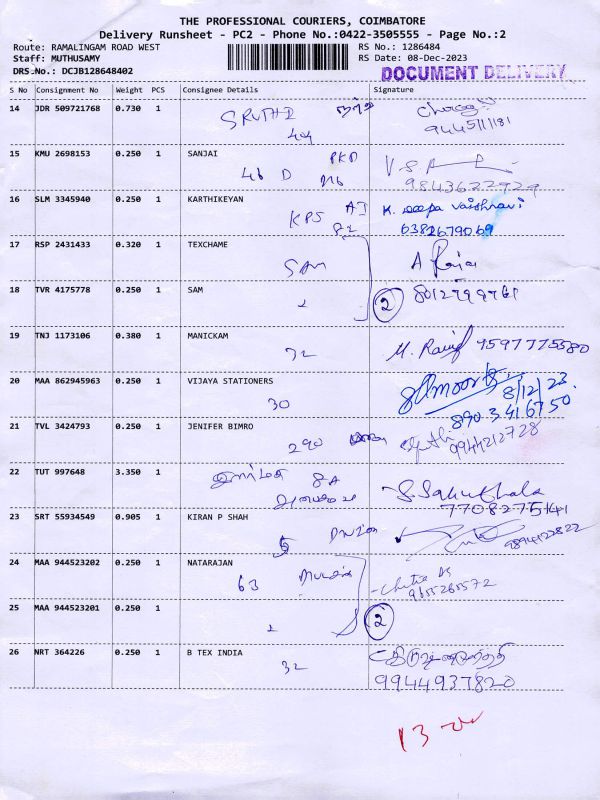 THE PROFESSIONAL COURIERS, COIMBATORE
Delivery Runsheet - PC2 - Phone No.:0422-3505555 - Page No.:2
Route: RAMALINGAM ROAD WEST RS No.: 1286484
Staff: MUTHUSAMY RS Date: 08-Dec-2023
DRS No.: DCJB128648402 DOCUMENT DELIVERY
S No Consignment No Weight PCS Consignee Details Signature
14 JDR 509721768 0.730 1 SRUTHI
404
15 KMU 2698153 0.250 1 SANJAI PKD
46 D
9843622929
16 SLM 3345940 0.250 1 KARTHIKEYAN
KPS K. Deepa Vaishnavi
82 6382679069
17 RSP 2431433 0.320 1 TEXCHAME
SAM A Raja
18 TVR 4175778 0.250 1 SAM
2 8012799761
19 TNJ 1173106 0.380 1 MANICKAM
72 7597775580
20 MAA 862945963 0.250 1 VIJAYA STATIONERS
30 8/12/23
8903416750
21 TVL 3424793 0.250 1 JENIFER BIMRO
290 9944212728
22 TUT 997648 3.350 1
8A
S. Sakuthala
7708275141
23 SRT 55934549 0.905 1 KIRAN P SHAH
5 9894122822
24 MAA 944523202 0.250 1 NATARAJAN
63 9655265572
25 MAA 944523201 0.250 1
2
26 NRT 364226 0.250 1 B TEX INDIA
32
9944937820
13